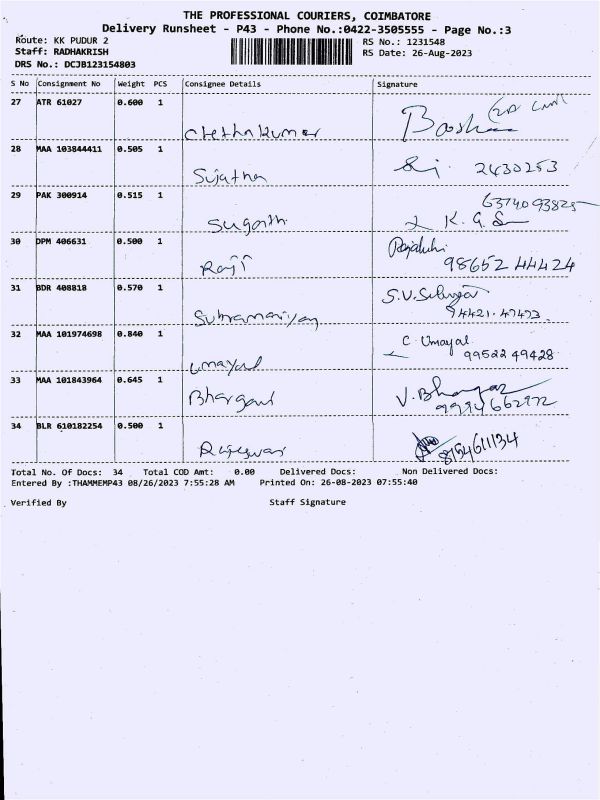 THE PROFESSIONAL COURIERS, COIMBATORE
Delivery Runsheet - P43 - Phone No.:0422-3505555 - Page No.:3
Route: KK PUDUR 2
RS No.: 1231548
Staff: RADHAKRISH
RS Date: 26-Aug-2023
DRS No.: DCJB123154803
S No Consignment No Weight PCS Consignee Details Signature
27 ATR 61027 0.600 1 Chethakumar
28 MAA 103844411 0.505 1 Sujatha 2430253
29 PAK 300914 0.515 1 Suganth K. G. 
30 DPM 406631 0.500 1 Raji 98652 44424
31 BDR 408818 0.570 1 Subramaniyan S.V. 94421.47473
32 MAA 101974698 0.840 1 Umayal C Umayal 99522 49428
33 MAA 101843964 0.645 1 Bhargavi V. 9994662972
34 BLR 610182254 0.500 1 Rajeswari 8754611134
Total No. Of Docs: 34 Total COD Amt: 0.00 Delivered Docs: Non Delivered Docs:
Entered By :THAMMEMP43 08/26/2023 7:55:28 AM Printed On: 26-08-2023 07:55:40
Verified By Staff Signature